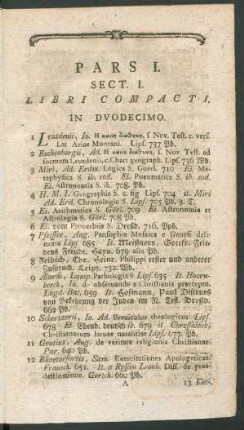 PARS I.
SECT. I.
LIBRI COMPACTI.
IN DVODECIMO.
1 Leusdenii, Io. Η καινη διαθηκη, s. Nov. Test. c. vers.
Lat Ariae Montani. Lips. 737 Pb.
2 Rechenbergii, Ad. Η καινη διαθηκη, s. Nov. Test. ad
formam Leusdenii, c. Chart geograph. Lips. 736 Pb.
3 Miri, Ad. Erdm. Logica S Gorel. 710 Ei. Me-
taphysica S. ib. eod. Ei. Pneumatica S. ib. eod.
Ei. Astronomia S ib. 708. Pb.
4 H. M. I. Geographia S. c. fig Lips. 704 it. Miri
Ad. Erd. Chronologia S Lips. 705 Pb. a. T.
5 Ei. Arithmetica S Gorl. 709 Ei. Astronomia et
Astrologia S Gorl. 708 Pb.
6 Ei. von Proverbiis S. Dresd. 716. Ppb.
7 Pfeiffer, Aug. Pansophia Mosaica e Genesi
Lips 685 It. Meisneri, Goetfr.
Freude. Hayn. 679 alls Pb.
8 Heinr. Philippi erster und anderer
Krips. 732. Pb.
9 Lamp. Pathologia S Lips. 635 It. Hoorn-
beeck, Io. de observando a Christianis praecepto.
Engl. Bat. 659 It. Hofmann, Paul Discurs
von Bekehrung der Juden im N. Test. Dresd.
662 Pb
10 Scherzerii, Io. Ad. Breviculus theologicus Lips.
678 Ei. Ebend. deutsch ib. 679 it
Christianorum larvae natalitiae Lips. 677. Pb.
11 Grotius, Aug. de veritate religionis Christianae.
Par. 640 Pb.
12 Sim. Exercitationes Apologeticae
Franek. 651. It. a Loock. Diss. de prae-
destinatione. Gorich. 660 Pb.
A
13